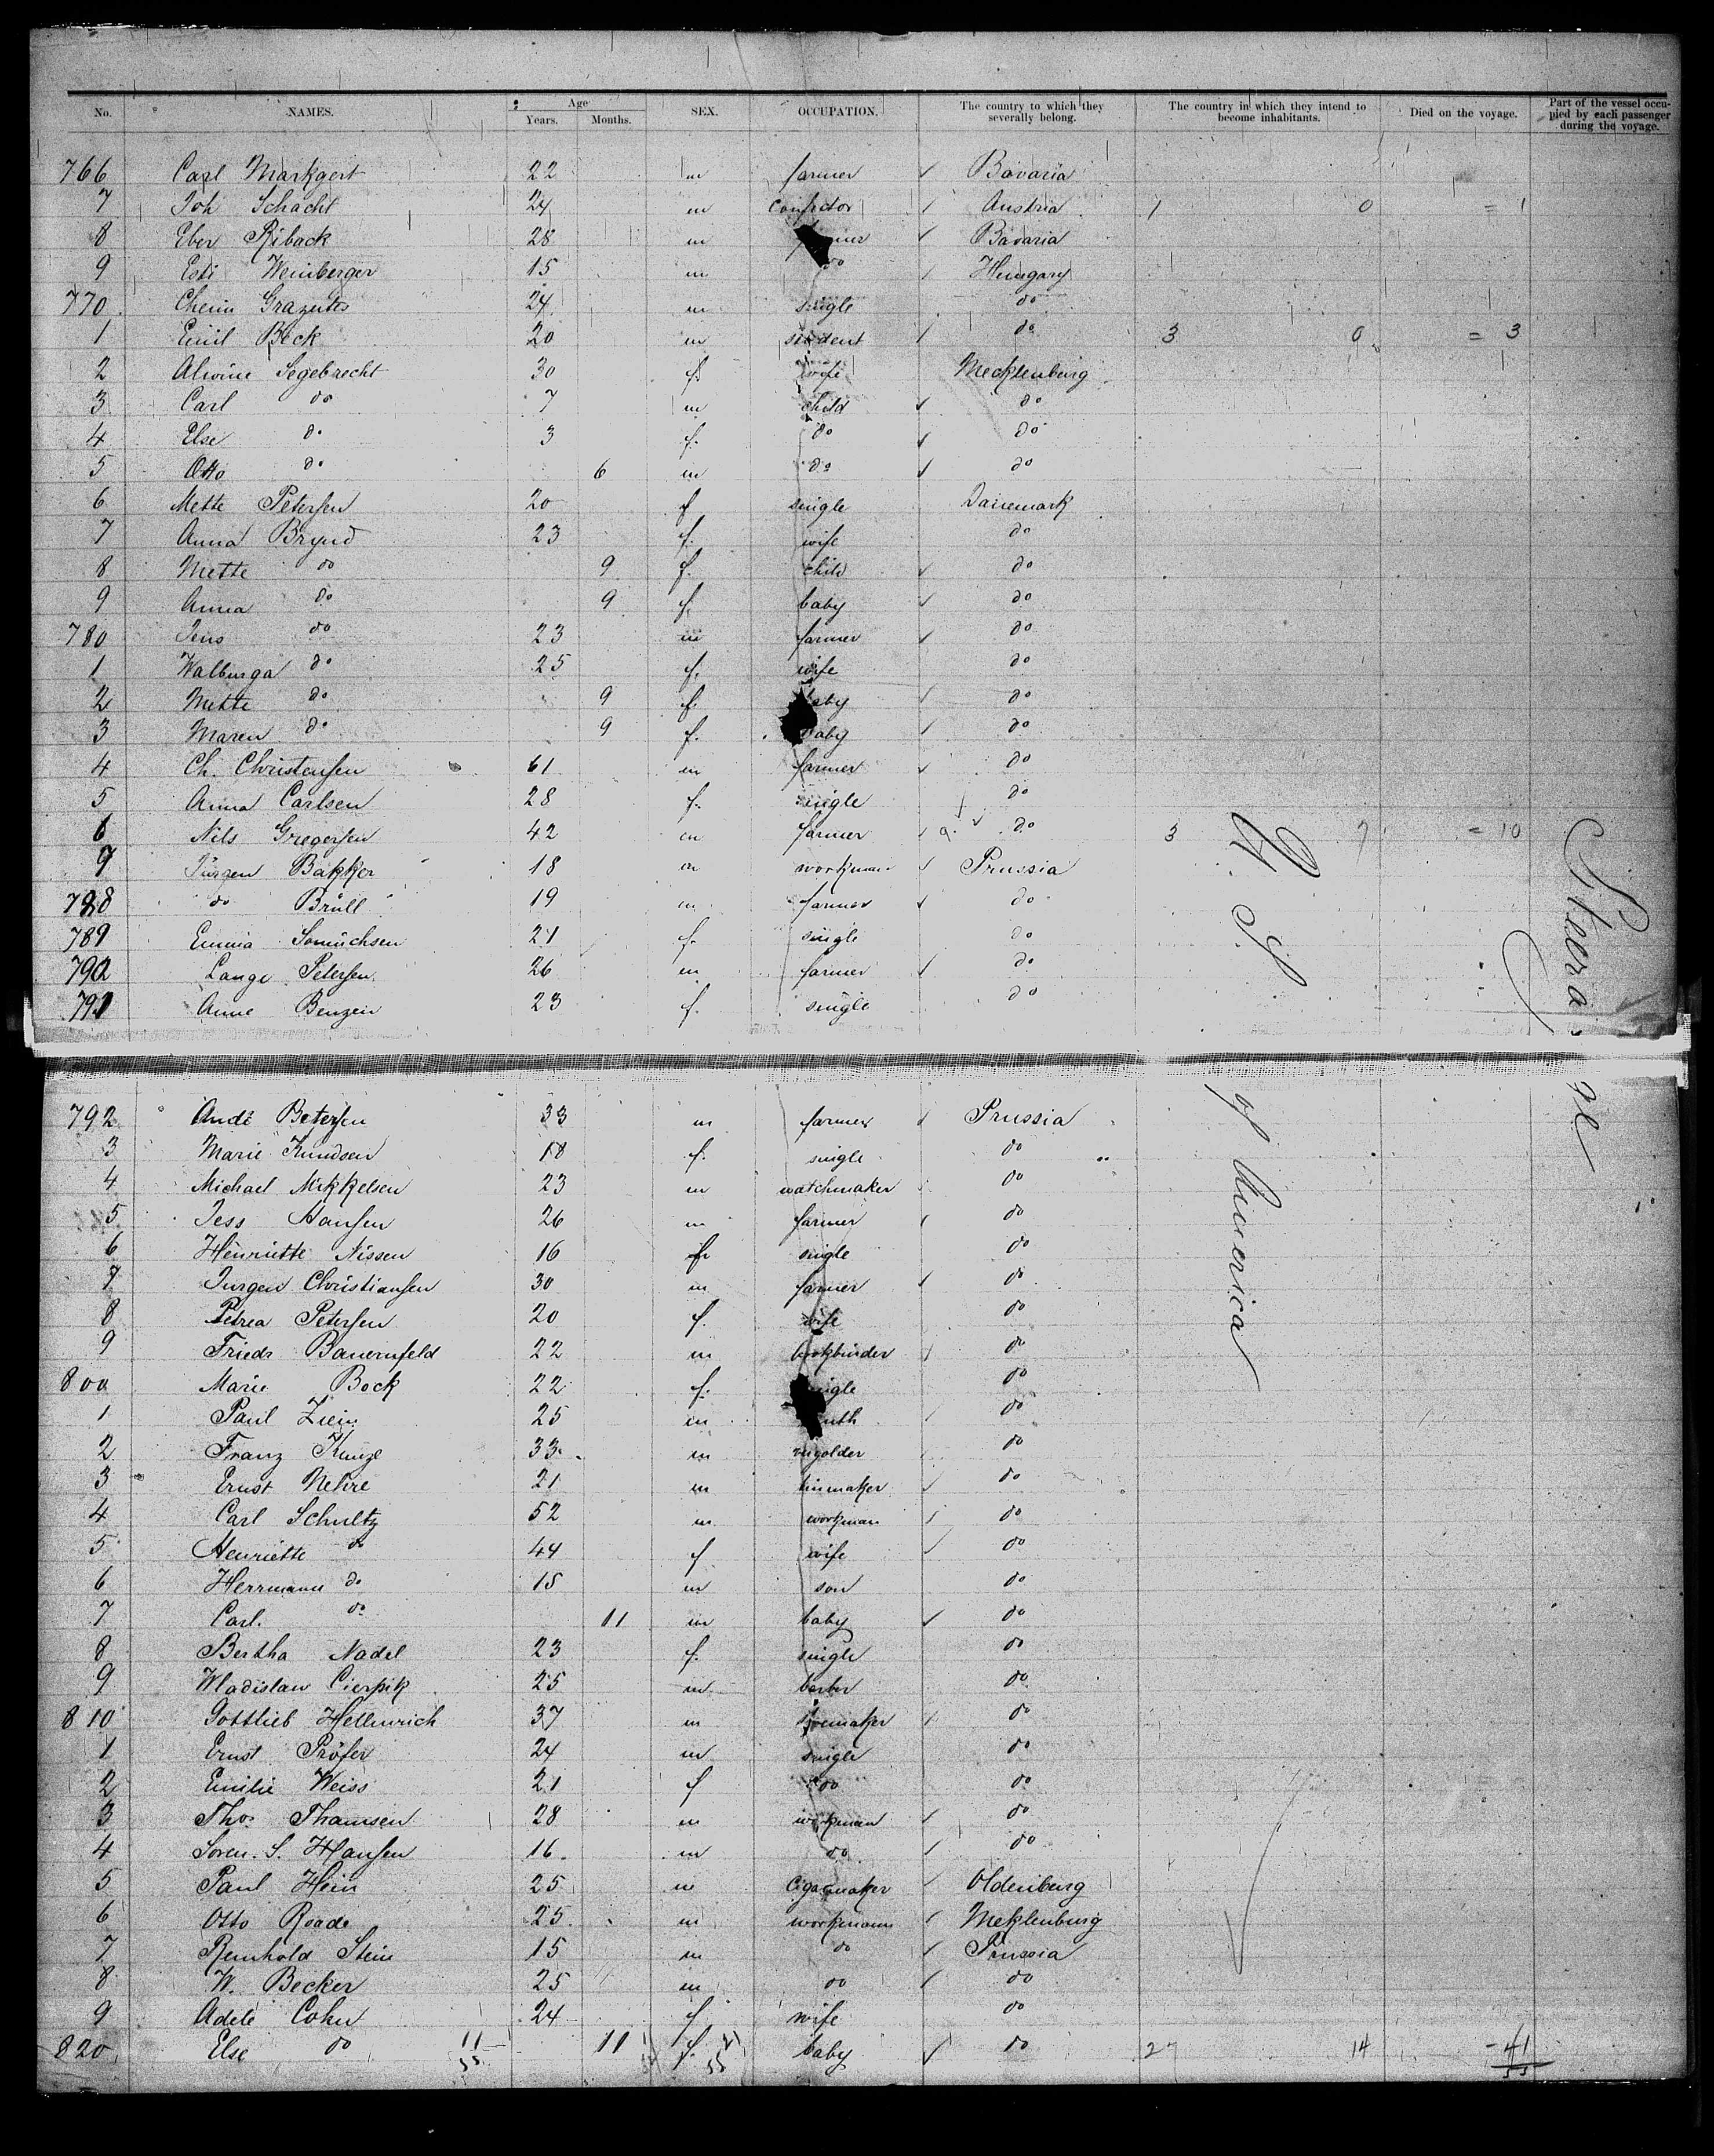 No. NAMES. Age Years. Months. SEX. OCCUPATION. The country to which they severally belong. The country in which they intend to become inhabitants. Died on the voyage. Part of the vessel occupied by each passenger during the voyage.
766 Carl Markgert 22 m farmer ✓ Bavaria
7 Joh Schacht 24 m Confector ✓ Austria 1 0 = 1
8 Eber Riback 28 m ✓ Bavaria
9 Esti Weinberger 15 m do ✓ Hungary
770 Cheim Grazutes 24 m single do
1 Emil Bock 20 m student ✓ do 3 0 = 3
2 Alwine Segebrecht 30 f. wife Mecklenburg
3 Carl do 7 m child ✓ do
4 Else do 3 f. do ✓ do
5 Otto do 6 m do ✓ do
6 Mette Petersen 20 f single Dainemark
7 Anna Brynd 23 f. wife do
8 Mette do 9 f. child ✓ do
9 Anna do 9 f. baby ✓ do
780 Jens do 23 m farmer ✓ do
1 Walburga do 25 f. wife do
2 Mette do 9 f. baby ✓ do
3 Maren do 9 f. baby ✓ do
4 Ch. Christensen 61 m farmer ✓ do
5 Anna Carlsen 28 f. single do
6 Nils Gregersen 42 m farmer ✓ do 3 7 = 10
7 Jürgen Bakker 18 m workman ✓ Prussia
788 do Brüll 19 m farmer ✓ do
789 Emma Sonnichsen 21 f. single do
790 Lange Petersen 26 m farmer ✓ do
791 Anne Benzen 23 f. single do
U. S. of America
Steerage
792 Ande Petersen 33 m farmer ✓ Prussia
3 Marie Knudsen 18 f. single do
4 Michael Mikkelsen 23 m watchmaker do
5 Jess Hansen 26 m farmer ✓ do
6 Henriette Nissen 16 f single do
7 Jurgen Christiansen 30 m farmer ✓ do
8 Petrea Petersen 20 f. wife do
9 Friedr Bauernfeld 22 m bookbinder ✓ do
800 Marie Bock 22 f. single do
1 Paul Ziem 25 m do
2 Franz Kunze 33 m do
3 Ernst Nehre 21 m ✓ do
4 Carl Schultz 52 m workman ✓ do
5 Henriette do 44 f wife ✓ do
6 Herrmann do 15 m son do
7 Carl. do 11 m baby ✓ do
8 Bertha Nadel 23 f. single do
9 Wladislaw Cierpik 25 m do
810 Gottlieb Hellmrich 37 m shoemaker ✓ do
1 Ernst Pröfer 24 m single do
2 Emilie Weiss 21 f do do
3 Tho. Thamsen 28 m workman ✓ do
4 Soren. S. Hansen 16. m do ✓ do
5 Paul Hein 25 m Cigarmaker ✓ Oldenburg
6 Otto Roade 25 m workmann ✓ Meklenburg
7 Reinhold Stein 15 m do ✓ Prussia
8 W. Becker 25 m do ✓ do
9 Adele Cohn 24 f wife do
820 Else do 11 f. baby ✓ do 27 14 - 41
11 55 21 55 55